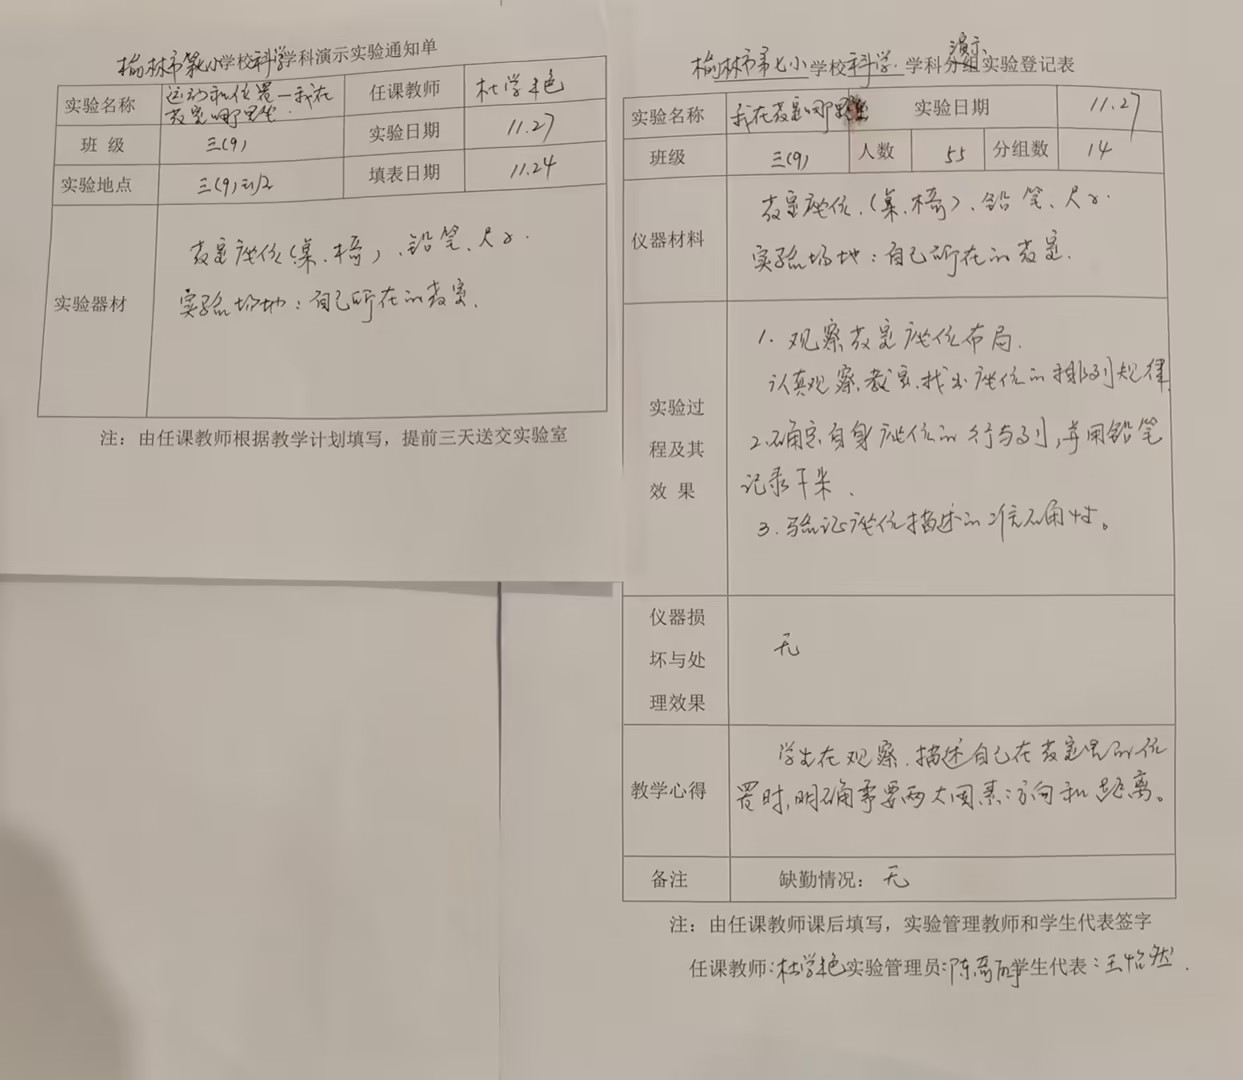 榆林市第七小学校科学学科演示实验通知单
实验名称 运动和位置—我在教室哪里坐. 任课教师 杜学艳
班 级 三(9) 实验日期 11.27
实验地点 三(9)班 填表日期 11.24
实验器材 教室座位(桌、椅)、铅笔、尺子.
实验场地：自己所在的教室.
注：由任课教师根据教学计划填写，提前三天送交实验室
榆林市第七小学校科学学科演示实验登记表
实验名称 我在教室哪里坐 实验日期 11.27
班级 三(9) 人数 55 分组数 14
仪器材料 教室座位、(桌、椅)、铅笔、尺子.
实验场地：自己所在的教室.
实验过程及其效果
1. 观察教室座位布局.
认真观察教室,找出座位的排列规律.
2.确定自身座位的行与列,并用铅笔
记录下来.
3.验证座位描述的准确性。
仪器损坏与处理效果 无
教学心得 学生在观察、描述自己在教室里的位
置时,明确需要两大因素:方向和距离。
备注 缺勤情况： 无
注：由任课教师课后填写，实验管理教师和学生代表签字
任课教师:杜学艳 实验管理员: 学生代表:王怡然.